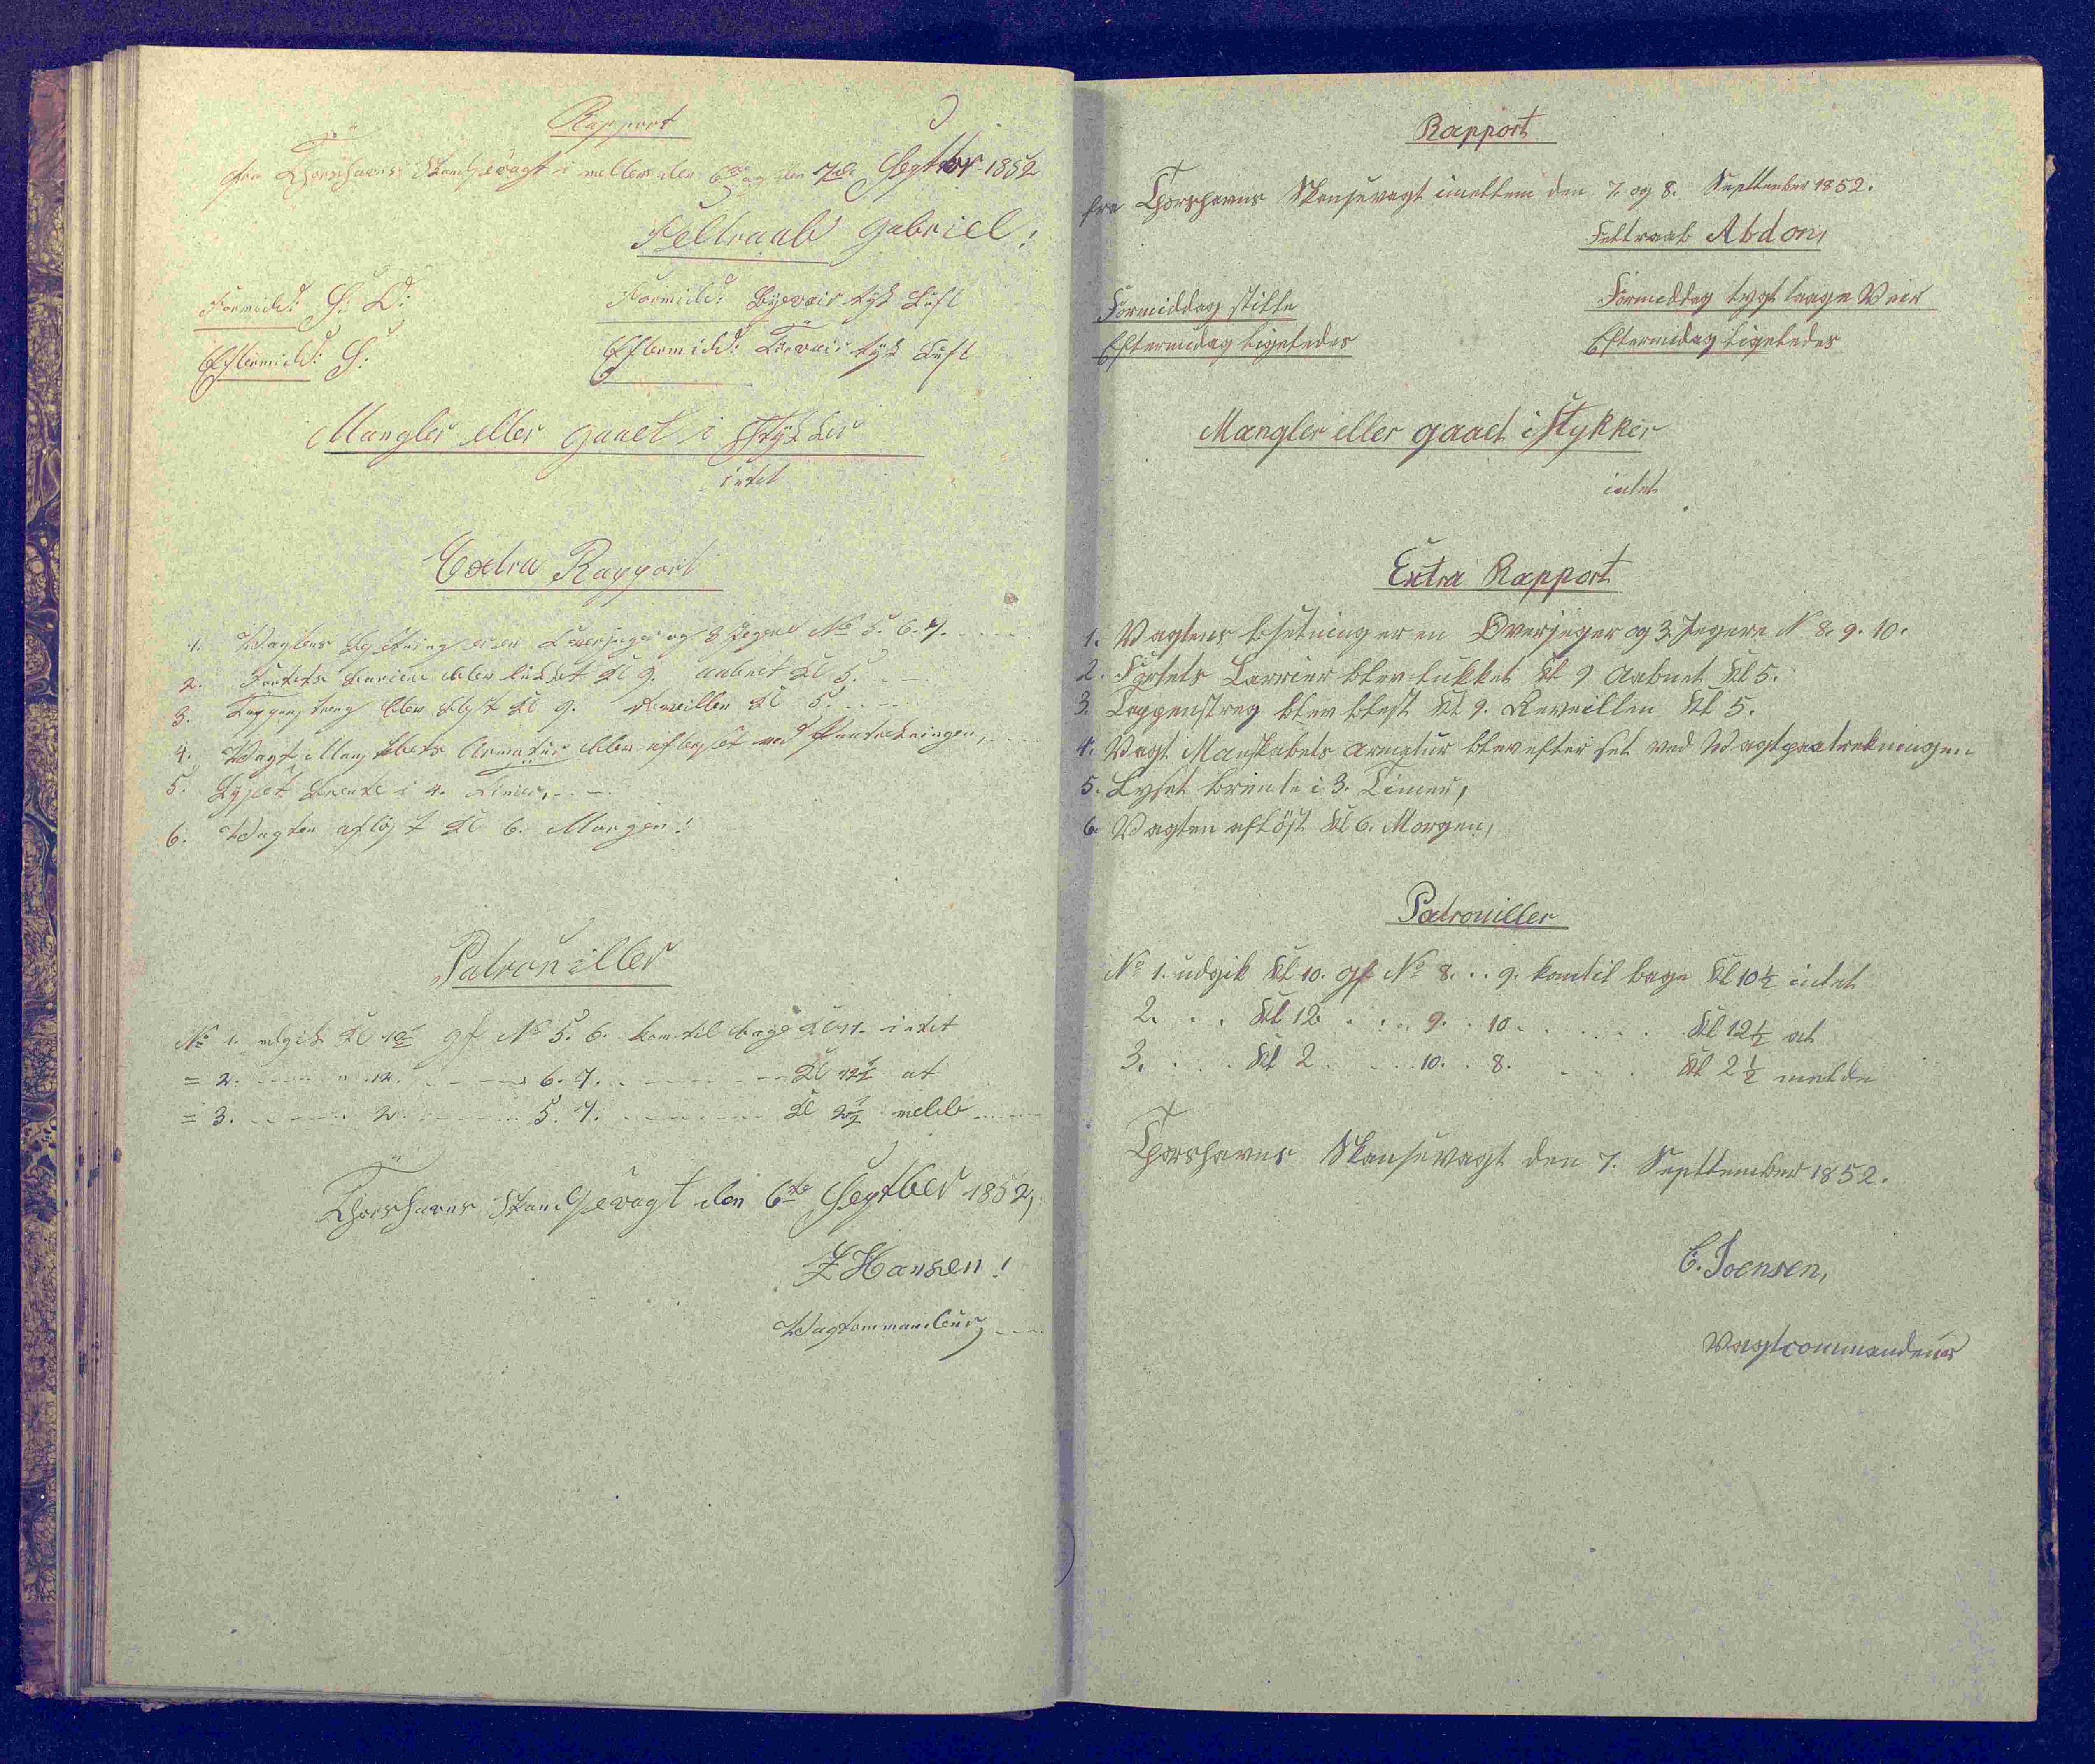 Rapport
fra Thorshavns Skandsevagt i mellem den 6te og den 7de Septbr 1852
Feltraab Gabriel!
Formidd: S: O: Formidd: Byevair tyk Luft
Eftermidd: S: Eftermidd: Törvair tyk Luft
Mangler eller gaaet i Stykker
intet
Extra Rapport
1. Vagtens Besetning er en Overjeger og 3 Jegere No 5. 6. 7.
2. Fortets Barier blev lukket Kl 9. aabnet Kl 5.
3. Tappenstreg blev blest Kl 9. Reveillen Kl 5.
4. Vagt Manskabets Armatur blev efterset ved Paatrekningen,
5. Lyset brente i 4. Timer,
6. Vagten aflöst Kl 6. Morgen!
Patrouiller
No 1. udgik Kl 10½ gf No 5. 6. kom tilbage Kl 11. intet
= 2. " 12. 6. 7. Kl 12½ at
= 3. 2. 5. 7. Kl 2½ melde
Thorshavns Skandsevagt den 6te Septber 1852,
Z Hansen!
Vagtommandeur,
Rapport
fra Thorshavns Skansevagt imellem den 7. og 8. Septtember 1852.
Feltraab Abdon,
Formiddag stille Formeddag tygt taage Veir
Eftermidag ligeledes Eftermidag ligeledes
Mangler eller gaaet i Stykker
intet
Extra Rapport
1. Vagtens besetning er en Overjeger og 3 Jegere N 8. 9. 10.
2. Fortets Barrier blev lukket Kl 9 Aabnet Kl 5.
3. Tappenstreg blev blest Kl 9. Reveillen Kl 5.
4. Vagt Manskabets armatur blev efter set ved Vagtpaatrekningen
5. Lyset brente i 3. Timer,
6. Vagten aflöst Kl 6. Morgen,
Patrouiller
No 1. udgik Kl 10. gf No 8. . . 9. kom til bage Kl 10½ intet
2. . . Kl 12 . . . 9. . 10. . . . . . Kl 12½ at
3. . . . Kl 2 . . . 10. . 8. . . . . Kl 2½ melde
Thorshavns Skansevagt den 7. Septtember 1852.
C. Joensen,
Vagtcommandeur